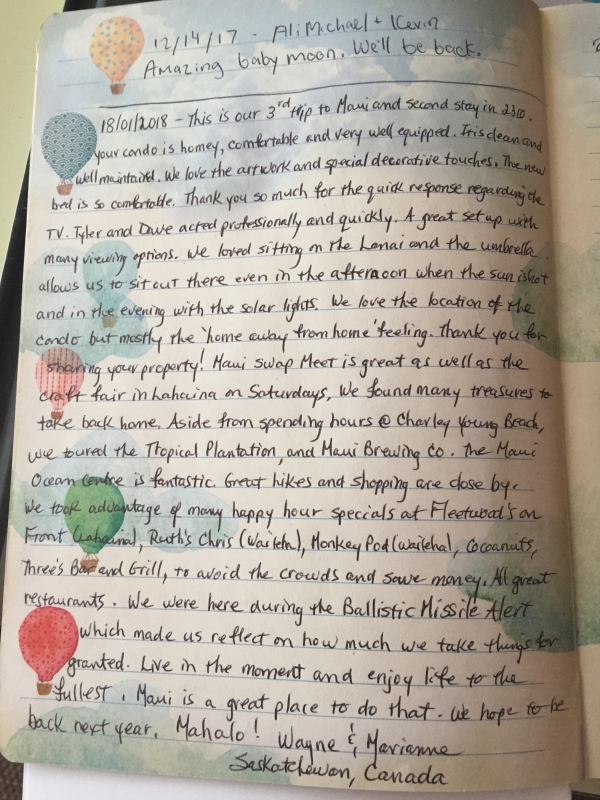 12/14/17 - Ali Michael + Kevin
Amazing baby moon. We'll be back.
18/01/2018 - This is our 3rd trip to Maui and second stay in 2300.
your condo is homey, comfortable and very well equipped. It is clean and
well maintained. We love the artwork and special decorative touches. The new
bed is so comfortable. Thank you so much for the quick response regarding the
TV. Tyler and Dave acted professionally and quickly. A great set up with
many viewing options. We loved sitting on the Lanai and the umbrella
allows us to sit out there even in the afternoon when the sun is hot
and in the evening with the solar lights. We love the location of the
condo but mostly the 'home away from home' feeling. Thank you for
sharing your property! Maui Swap Meet is great as well as the
craft fair in Lahaina on Saturdays. We found many treasures to
take back home. Aside from spending hours @ Charley Young Beach,
we toured the Tropical Plantation, and Maui Brewing Co. The Maui
Ocean Centre is fantastic. Great hikes and shopping are close by.
We took advantage of many happy hour specials at Fleetwood's on
Front (Lahaina), Ruth's Chris (Wailea), Monkey Pod (Wailea), Cocoanuts,
Three's Bar and Grill, to avoid the crowds and save money. All great
restaurants. We were here during the Ballistic Missile Alert
which made us reflect on how much we take things for
granted. Live in the moment and enjoy life to the
fullest. Maui is a great place to do that. We hope to be
back next year. Mahalo! Wayne & Marianne
Saskatchewan, Canada